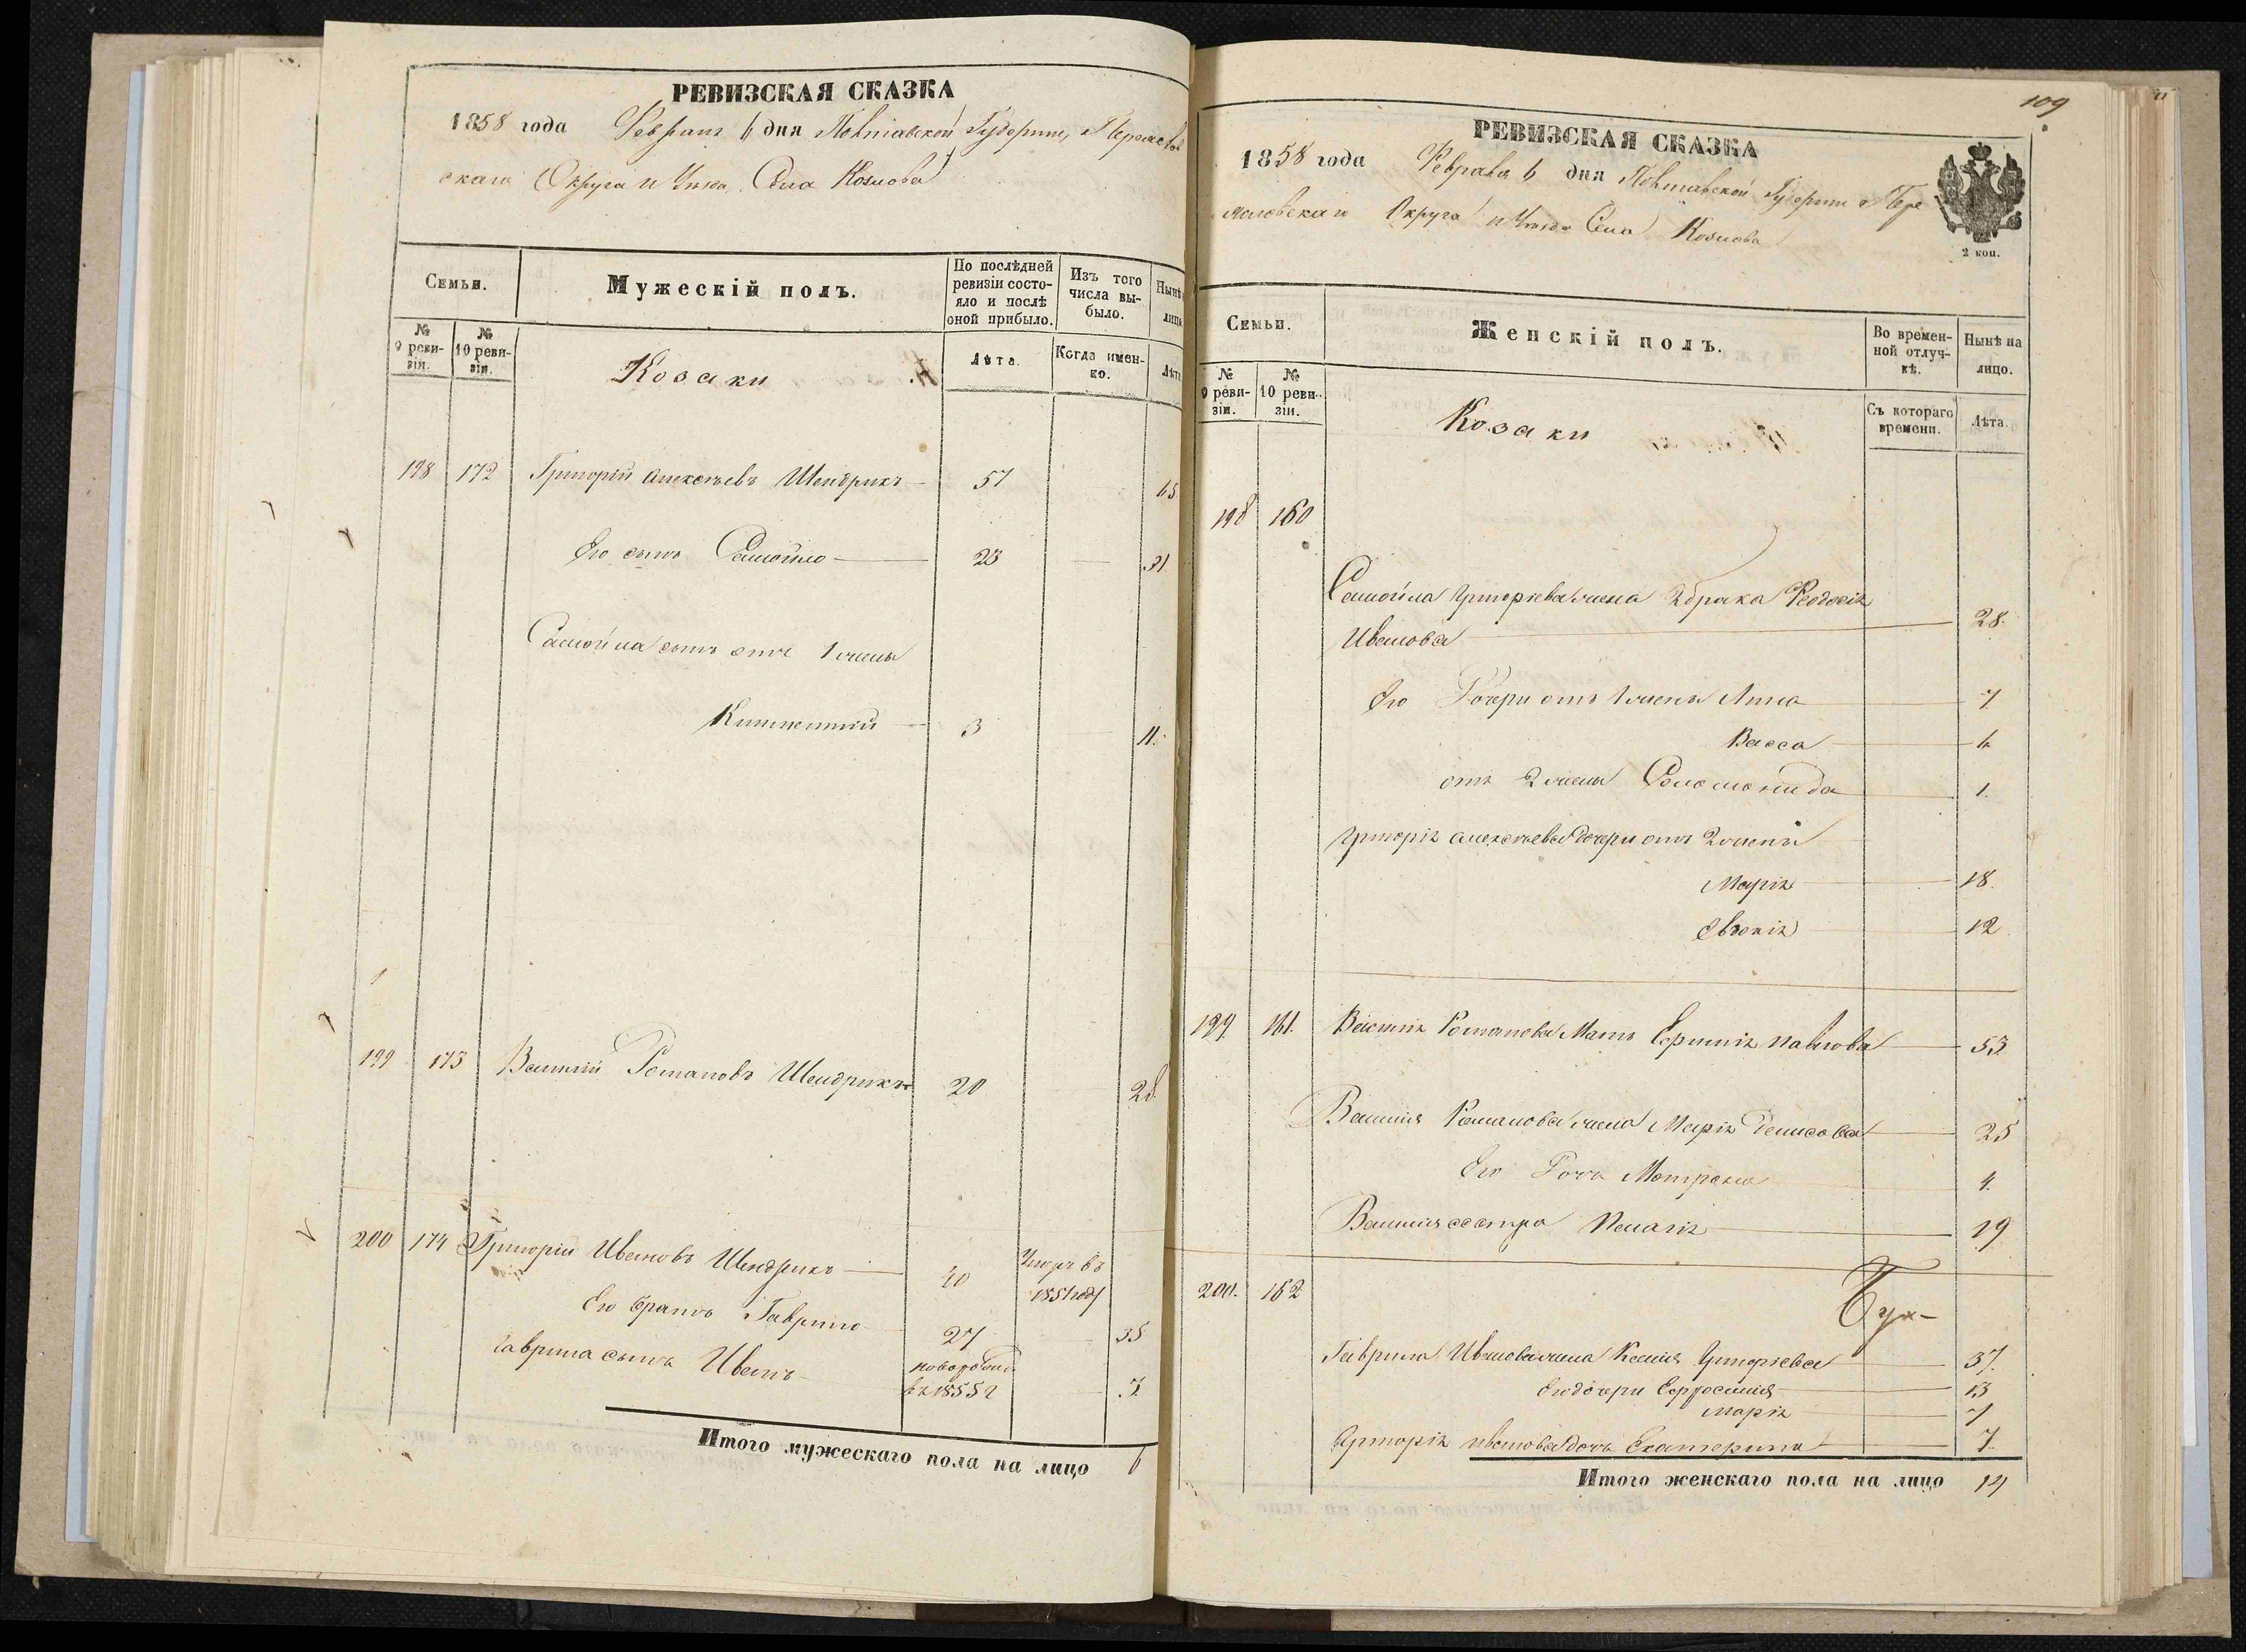 РЕВИЗСКАЯ СКАЗКА
1858 года Февраля 6 дня Полтавской Губернии, Переяслов
скаго Округа и Уезда Села Козлова
Семьи.
Мужескій полъ.
По послѣдней ревизіи состояло и послѣ оной прибыло.
Изъ того числа выбыло.
Нынѣ
лицо
№ 9 ревизіи.
№ 10 ревизіи.
Козаки
Лѣта.
Когда именно.
Лѣта
198 172 Григорій Алексѣевъ Шендрикъ 57 65
Его сынъ Самойло 23 31
Самойла сынъ отъ 1 жены
3 11.
199 173 Василій Романовъ Шендрикъ 20 28
200 174 Григорій Ивановъ Шендрикъ 40 Умеръ въ 1851 году
Его братъ Гаврило 27 35
Гаврила сынъ Иванъ новорожден въ 1855 г 3.
Итого мужескаго пола на лицо 6
109
РЕВИЗСКАЯ СКАЗКА
1858 года Февраля 6 дня Полтавской Губерніи Пере
яславскаго Округа и Уезда Села Козлова
2 коп.
Семьи.
Женскій полъ.
Во временной отлучкѣ.
Нынѣ на лицо.
№ 9 ревизіи.
№ 10 ревизіи.
Козаки
Съ котораго времени.
Лѣта.
198 160
Самойла Григорьева жена 2 брака Феодосія
Иванова 28.
Его Дочери отъ 1 жены Анна 7
Васса 6
отъ 2 жены Соломонида 1.
Григорія Алексѣева дочери отъ 2 жены
Марія 18.
Евдокія 12
199. 161. Василія Романова Мать Евфимія Павлова 53.
Василія Романова жена Марія Денисова 25
Его Дочь Мотрона 4.
Василія сестра Пелагія 19
200. 162
Гаврила Иванова жена Ксенія Григорьева 37.
Его дочери Евфросинія 13
Марія 7
Григорія Иванова дочь Екатерина 7.
Итого женскаго пола на лицо 14